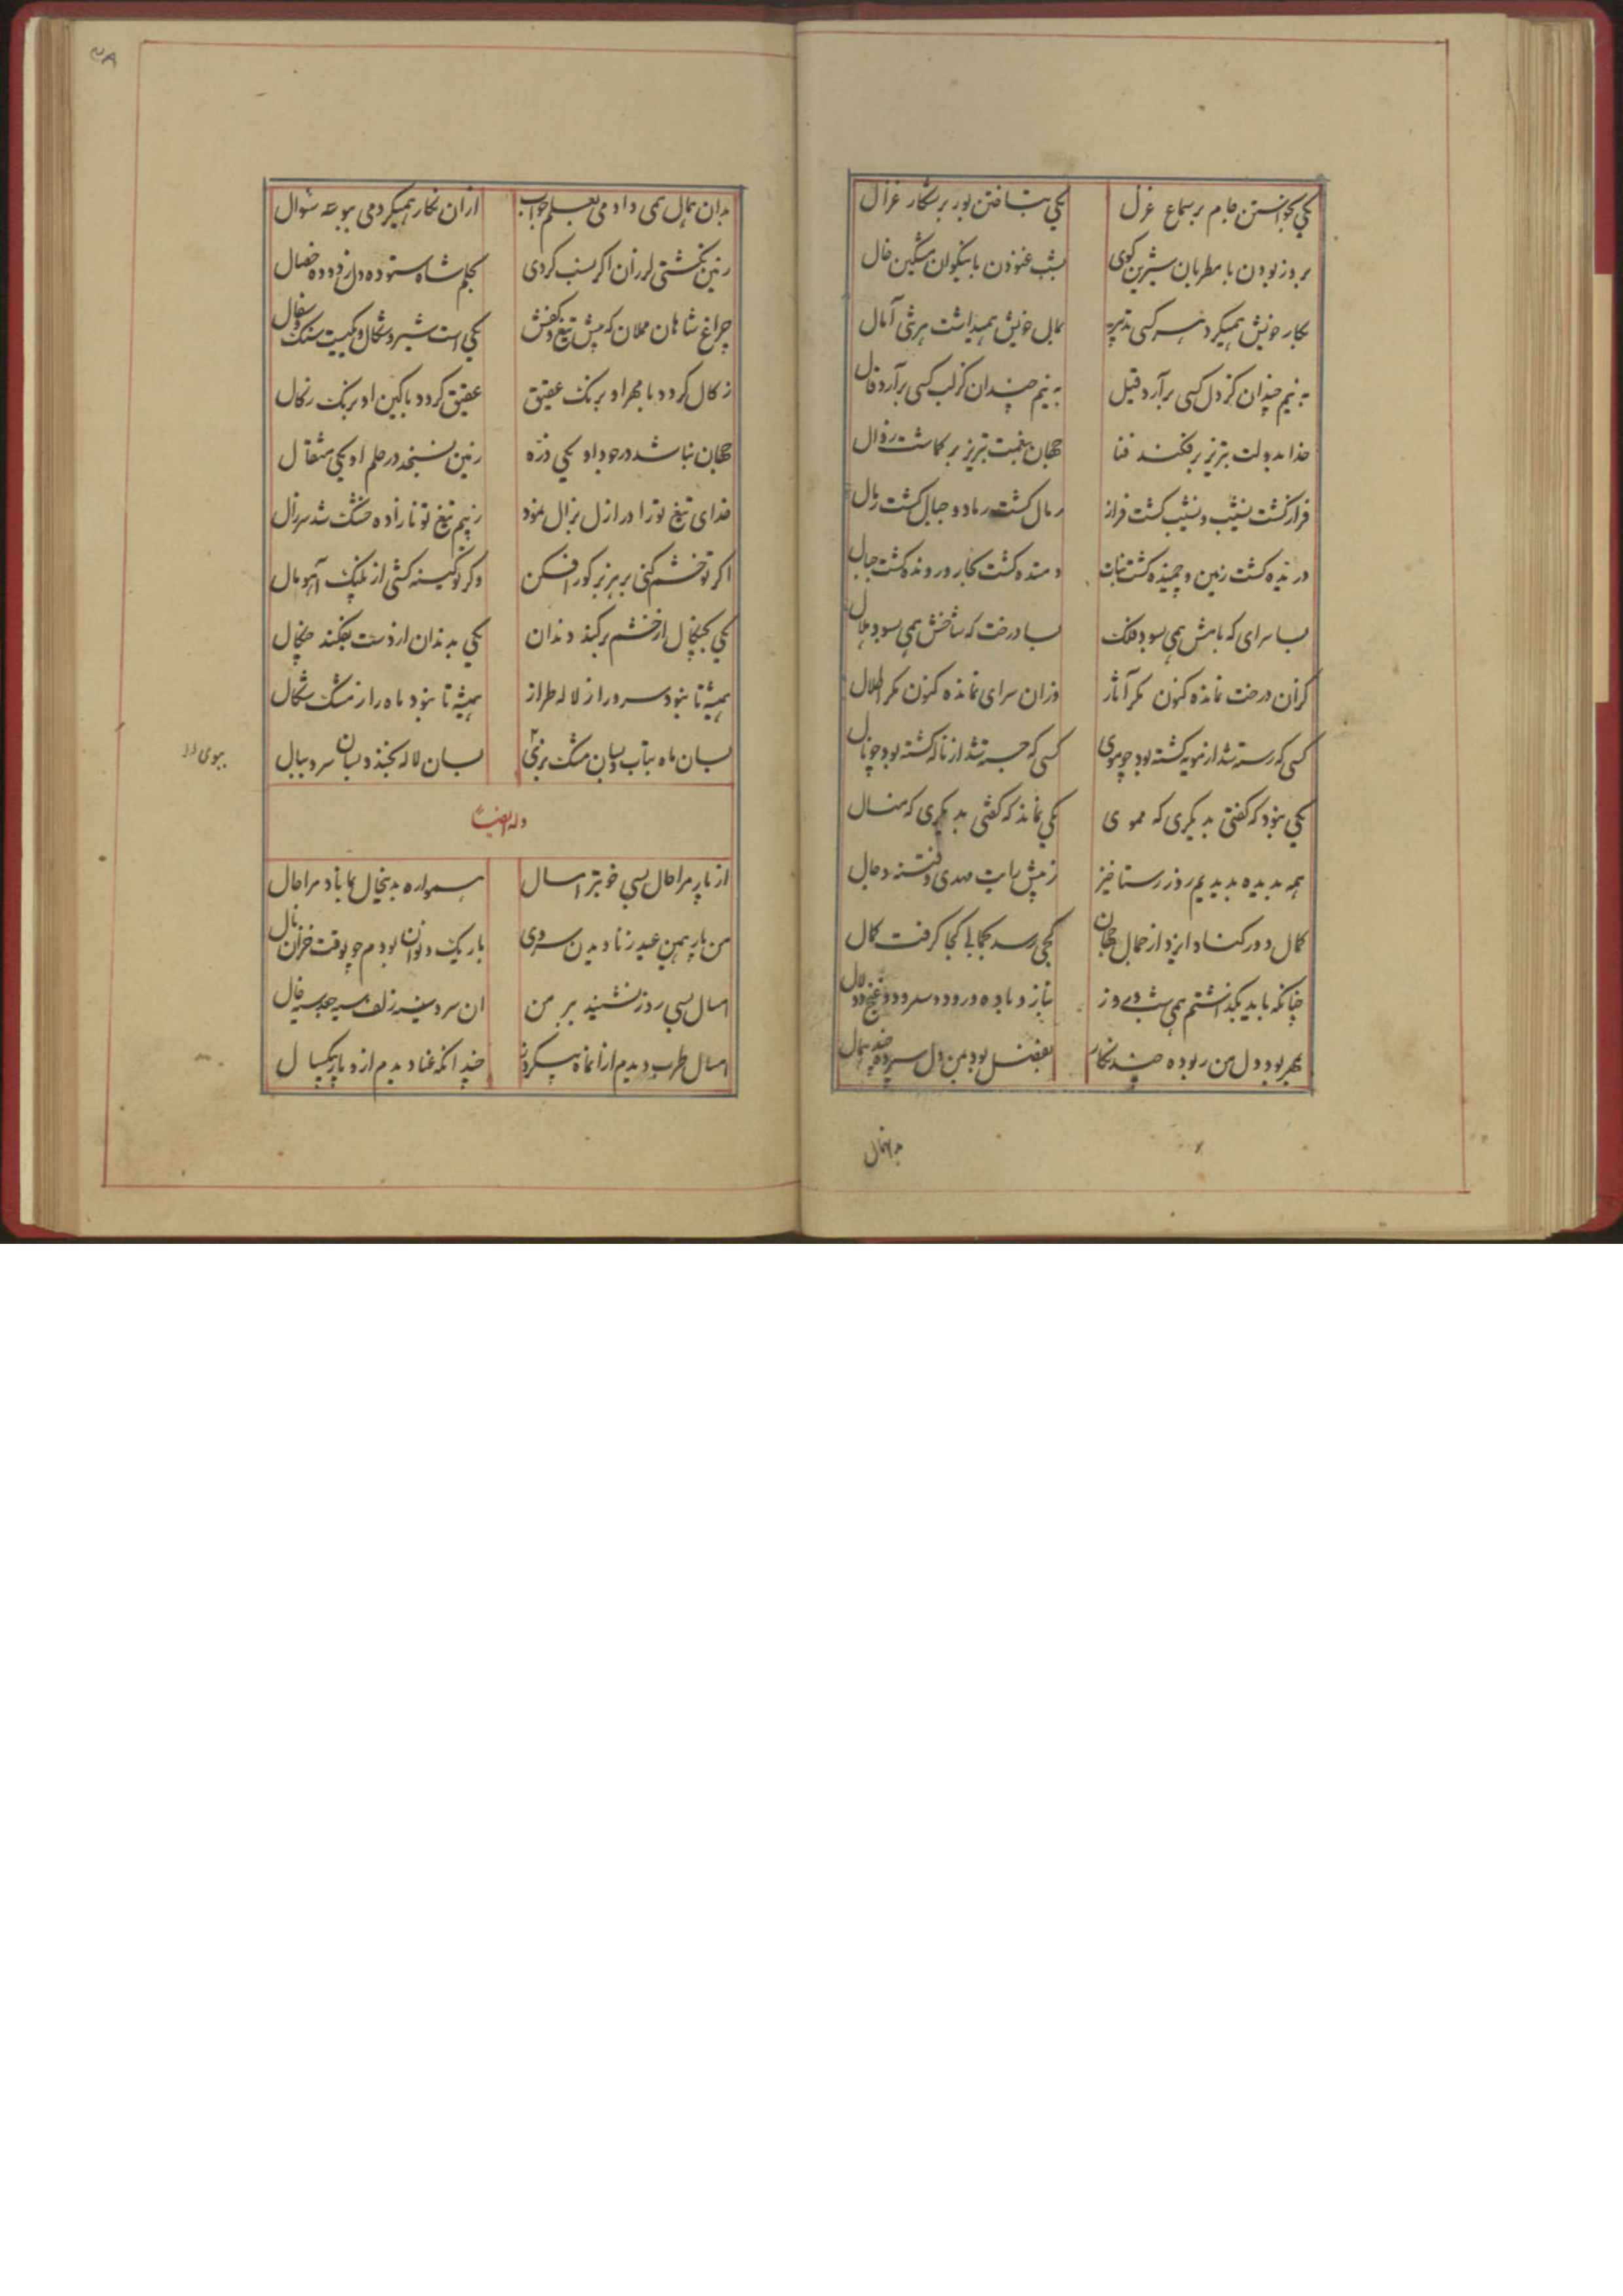 یکی بخواستن جام بر سماع غزل یکی بتافتن یوز بر شکار غزال
بروز بودن با مطربان شیرین کوی بشب غنودن با نیکوان مشکین خال
بکار خویش همیکرد هر کسی تدبیر بمال خویش همیداشت هر شی آمال
به نیم چندان کز دل کسی برآرد قیل به نیم چندان کز لب کسی برآرد قال
خدا بدولت تبریز بر فکند فنا جهان بنعمت تبریز بر کماشت زوال
فراز کشت نشیب و نشیب کشت فراز رمال کشت رماد و جبال کشت رمال
درنده کشت زمین و چمنده کشت نبات دمنده کشت بحار و رونده کشت جبال
بسا سرای که بامش همی بسود فلک بسا درخت که شاخش همی بسود هلال
کزان درخت نمانده کنون مکر آثار وزان سرای نمانده کنون مکر اطلال
کسی که رسته شد از مویه کشته بود چو موی کسی که جسته شد از ناله کشته بود چو نال
یکی نبود که کفتی بدیکری که مموی یکی نماند که کفتی بدیکری که منال
همه بدیده بدیدیم روز رستاخیز ز پیش رایت مهدی و فتنه دجال
کمال دور کناد ایزد از جمال جهان کجی رسد بجمالی کجا کرفت کمال
چنانکه باید بکذاشتم همی شب و روز بناز و باده و رود و سرود و غنج و دلال
بمهر بود دل من ربوده چند نکار بفضل بود بمن دل سپرده چند همال
بدان همال
۳۸
بدان همال همی دادمی بعلم جواب ازان نکار همیکردمی ببوسه سؤال
زمین نکشتی لرزان اکر سبب کردی بحلم شاه ستوده دل زدوده خصال
چراغ شاهان مملان که پیش تیغ و کفش یکی است شیر و شکال و یکیست سنک و سفال
زکال کردد با مهر او برنک عقیق عقیق کردد با کین او برنک زکال
جهان نباشد در جود او یکی ذره زمین نسنجد در حلم او یکی مثقال
فدای تیغ تو زا در ازل بزال نمود ز بیم تیغ تو نازاده خشک شد سر زال
اکر تو خشم کنی بر هزبر کور افکن وکر تو کینه کشی از پلنک آهو مال
یکی بچنکال از خشم بر کند دندان یکی بدندان از دست بفکند چنکال
همیشه تا نبود سرو را ز لاله طراز همیشه تا نبود ماه را ز مشک شکال
بسان ماه بتاب و بسان مشک بزی بسان لاله بخند و بسان سرو ببال
ببوی
وله ایضاً
از پار مرا حال بسی خوبتر امسال همواره بدینحال بماناد مرا حال
من پار بهمین عید ز نادیدن سروی باریک و نوان بودم چو بوقت خزان نال
امسال بسی روز نشنید بر من ان سرو سیه زلف سیه جعد سیه خال
امسال طرب دیدم ازانماه بیکروز چندانکه عنا دیدم ازو پار بیکسال